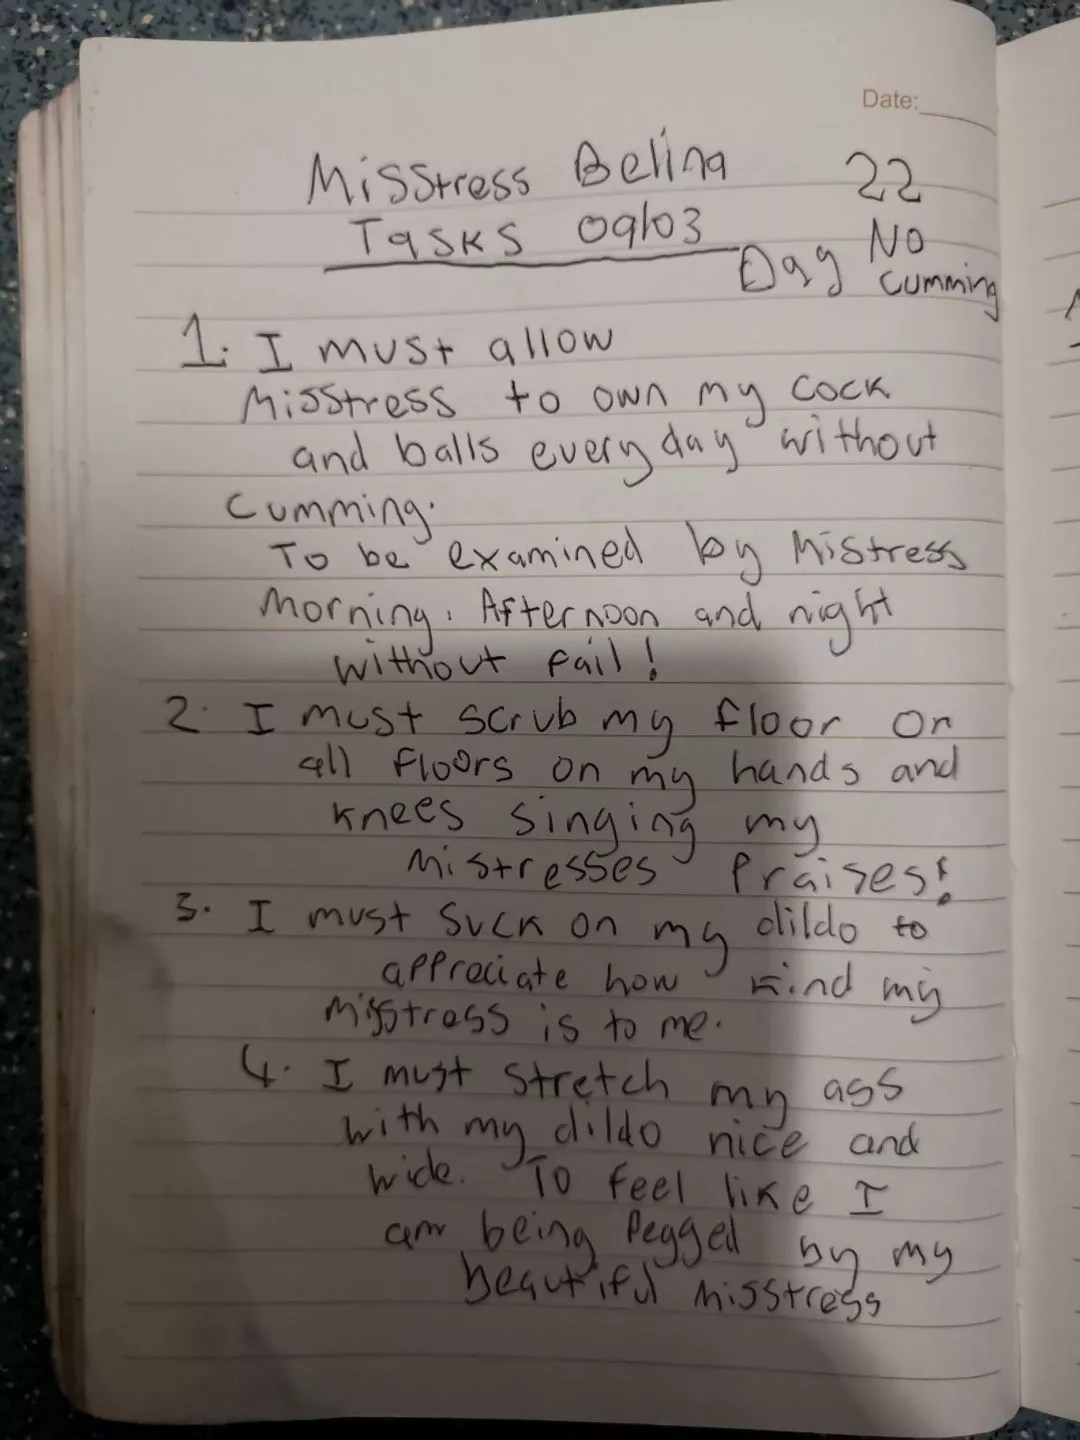 Date:
Misstress Belina 22
Tasks 09/03
Day No
Cumming
1. I must allow
Misstress to own my cock
and balls every day without
Cumming.
To be examined by Mistress
Morning. Afternoon and night
without fail!
2. I must scrub my floor or
all floors on my hands and
knees singing my
Mistresses Praises!
3. I must suck on my dildo to
appreciate how kind my
Misstress is to me.
4. I must stretch my ass
with my dildo nice and
wide. To feel like I
am being Pegged by my
beautiful Misstress